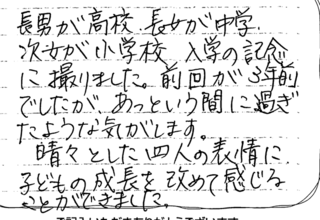 長男が高校、長女が中学、
次女が小学校 入学の記念
に撮りました。前回が3年前
でしたが、あっという間に過ぎ
たような気がします。
晴々とした四人の表情に、
子どもの成長を改めて感じる
ことができました。